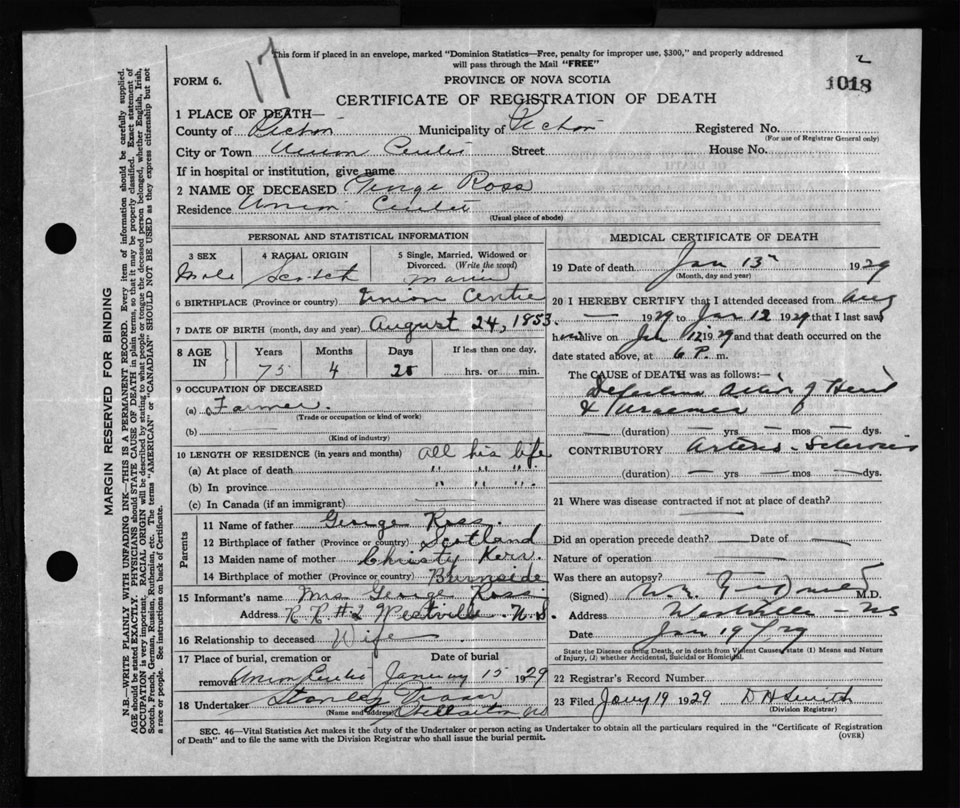 17
This form if placed in an envelope, marked "Dominion Statistics—Free, penalty for improper use, $300," and properly addressed
will pass through the Mail "FREE"
2
FORM 6.
PROVINCE OF NOVA SCOTIA
1018
CERTIFICATE OF REGISTRATION OF DEATH
1 PLACE OF DEATH—
County of Pictou Municipality of Pictou Registered No.
(For use of Registrar General only)
City or Town Union Centre Street House No.
If in hospital or institution, give name
2 NAME OF DECEASED George Ross
Residence Union Centre
(Usual place of abode)
PERSONAL AND STATISTICAL INFORMATION
3 SEX 4 RACIAL ORIGIN 5 Single, Married, Widowed or
Divorced. (Write the word)
Male Scotch Married
6 BIRTHPLACE (Province or country) Union Centre
7 DATE OF BIRTH (month, day and year) August 24, 1853.
8 AGE IN Years Months Days If less than one day,
75 4 20 hrs. or min.
9 OCCUPATION OF DECEASED
(a) Farmer.
(Trade or occupation or kind of work)
(b)
(Kind of industry)
10 LENGTH OF RESIDENCE (in years and months) all his life
(a) At place of death " " "
(b) In province " " "
(c) In Canada (if an immigrant)
Parents
11 Name of father George Ross.
12 Birthplace of father (Province or country) Scotland
13 Maiden name of mother Christy Kerr.
14 Birthplace of mother (Province or country) Burnside
15 Informant's name Mrs George Ross
Address R R #2 Westville N.S.
16 Relationship to deceased Wife.
17 Place of burial, cremation or Date of burial
removal Union Centre January 15 1929
18 Undertaker Stanley Fraser
(Name and address) Stellarton NS
MEDICAL CERTIFICATE OF DEATH
19 Date of death Jan 13 1929
(Month, day and year)
20 I HEREBY CERTIFY that I attended deceased from Aug
— 1929 to Jan 12 1929 that I last saw
him alive on Jan 12 1929 and that death occurred on the
date stated above, at 6 P. m.
The CAUSE of DEATH was as follows:—
Heart
& Uraemia
— (duration) — yrs. — mos. — dys.
CONTRIBUTORY Arterio-Sclerosis
(duration) — yrs. — mos. — dys.
21 Where was disease contracted if not at place of death?
Did an operation precede death? — Date of —
Nature of operation —
Was there an autopsy?
(Signed) M.D.
Address Westville - NS
Date Jan 19 / 29
State the Disease causing Death, or in death from Violent Causes state (1) Means and Nature
of Injury, (2) whether Accidental, Suicidal or Homicidal.
22 Registrar's Record Number
23 Filed Jany 19 1929 D H Smith
(Division Registrar)
SEC. 46—Vital Statistics Act makes it the duty of the Undertaker or person acting as Undertaker to obtain all the particulars required in the "Certificate of Registration
of Death" and to file the same with the Division Registrar who shall issue the burial permit.
(OVER)
MARGIN RESERVED FOR BINDING
N.B.—WRITE PLAINLY WITH UNFADING INK—THIS IS A PERMANENT RECORD. Every item of information should be carefully supplied.
AGE should be stated EXACTLY. PHYSICIANS should STATE CAUSE OF DEATH in plain terms, so that it may be properly classified. Exact statement of
OCCUPATION is very important. RACIAL ORIGIN will be described by stating to what people or tongue the deceased person belonged, whether English, Irish,
Scotch, French, German, Russian, Ruthenian, etc. The terms "AMERICAN" or "CANADIAN" SHOULD NOT BE USED as they express citizenship but not
a race or people. See instructions on back of Certificate.